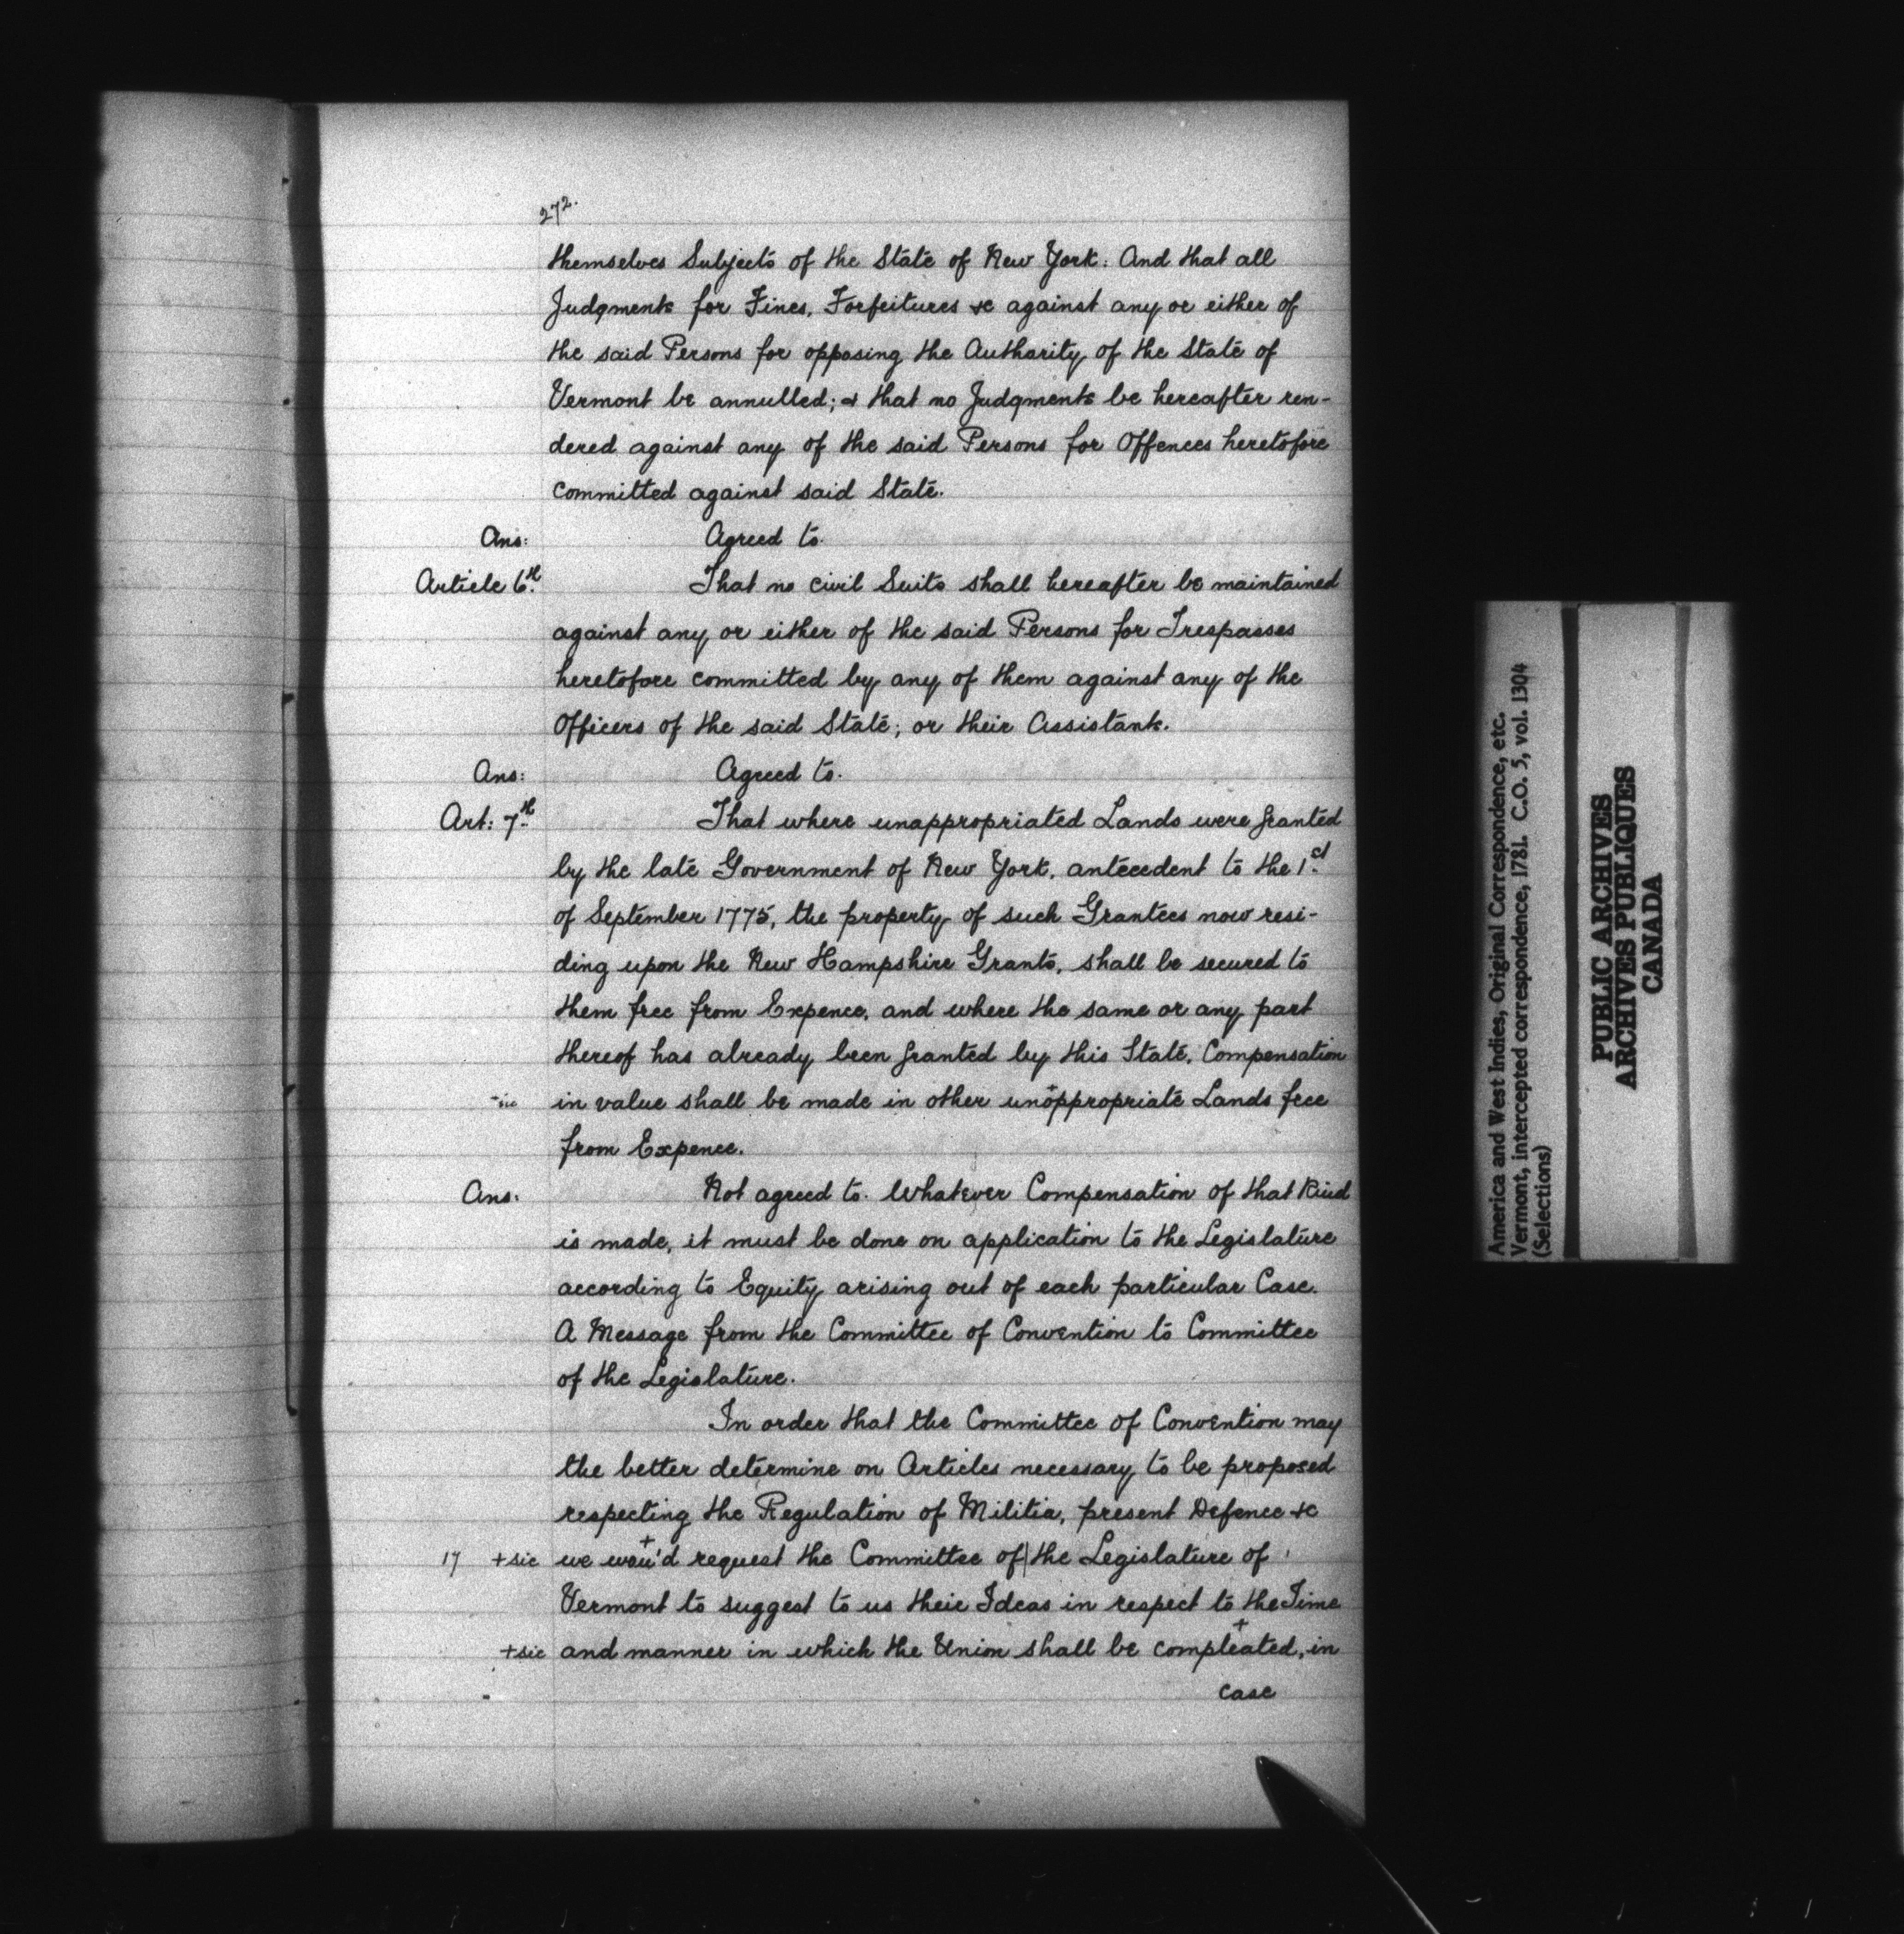 272.
themselves Subjects of the State of New York: And that all
Judgments for Fines, Forfeitures &c against any or either of
the said Persons for opposing the Authority of the State of
Vermont be annulled; & that no Judgments be hereafter ren-
dered against any of the said Persons for Offences heretofore
committed against said State.
Ans: Agreed to.
Article 6th. That no civil Suits shall hereafter be maintained
against any or either of the said Persons for Trespasses
heretofore committed by any of them against any of the
Officers of the said State; or their Assistants.
Ans: Agreed to.
Art: 7th. That where unappropriated Lands were granted
by the late Government of New York, antecedent to the 1st
of September 1775, the property of such Grantees now resi-
ding upon the New Hampshire Grants, shall be secured to
them free from Expence, and where the same or any part
thereof has already been granted by this State, Compensation
+sic in value shall be made in other unoppropriate Lands free
from Expence.
Ans: Not agreed to. Whatever Compensation of that Kind
is made, it must be done on application to the Legislature
according to Equity arising out of each particular Case.
A Message from the Committee of Convention to Committee
of the Legislature.
In order that the Committee of Convention may
the better determine on Articles necessary to be proposed
respecting the Regulation of Militia, present Defence &c
17 +sic we wou'd request the Committee of | the Legislature of
Vermont to suggest to us their Ideas in respect to the Time
+sic and manner in which the Union shall be compleated, in
case
America and West Indies, Original Correspondence, etc.
Vermont, intercepted correspondence, 1781. C.O. 5, vol. 1304
(Selections)
PUBLIC ARCHIVES
ARCHIVES PUBLIQUES
CANADA